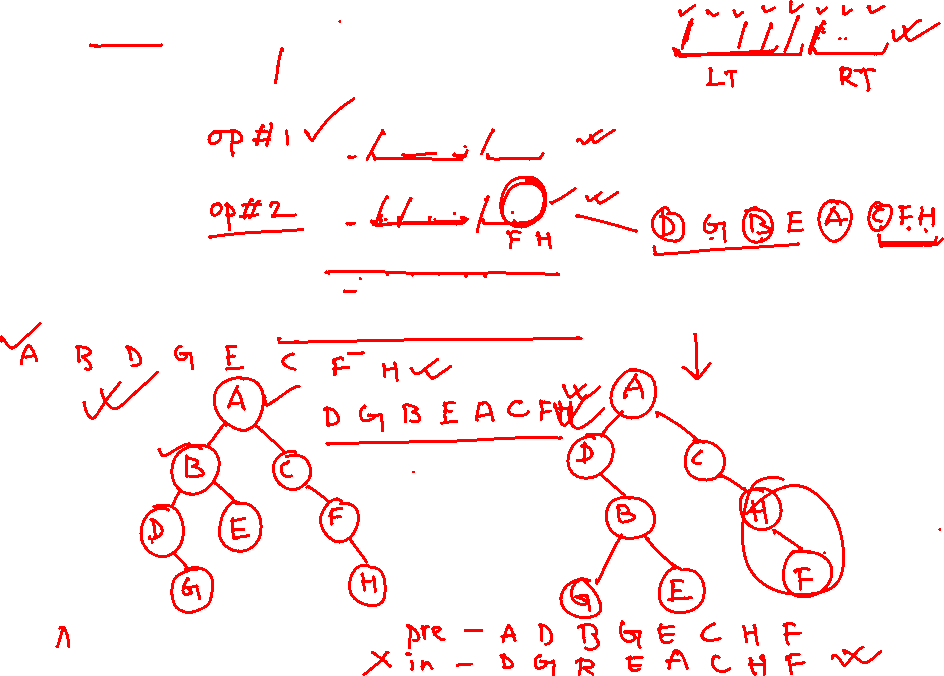 LT RT
op#1
op#2
F H
D G B E A C F H
A B D G E C F H
A
D G B E A C F H
B C
D E F
G H
A
D C
B H
G E F
pre - A D B G E C H F
X in - D G R E A C H F